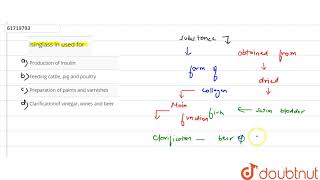 61719793
isinglass in used for
a) Production of Insulin
b) Feeding cattle, pig and poultry
c) Preparation of paints and varnishes
d) Clarification of vinegar, wines and beer
substance
obtained from
form of
dried
collagen
Main function
fish
swim bladder
Clarification — beer
doubtnut